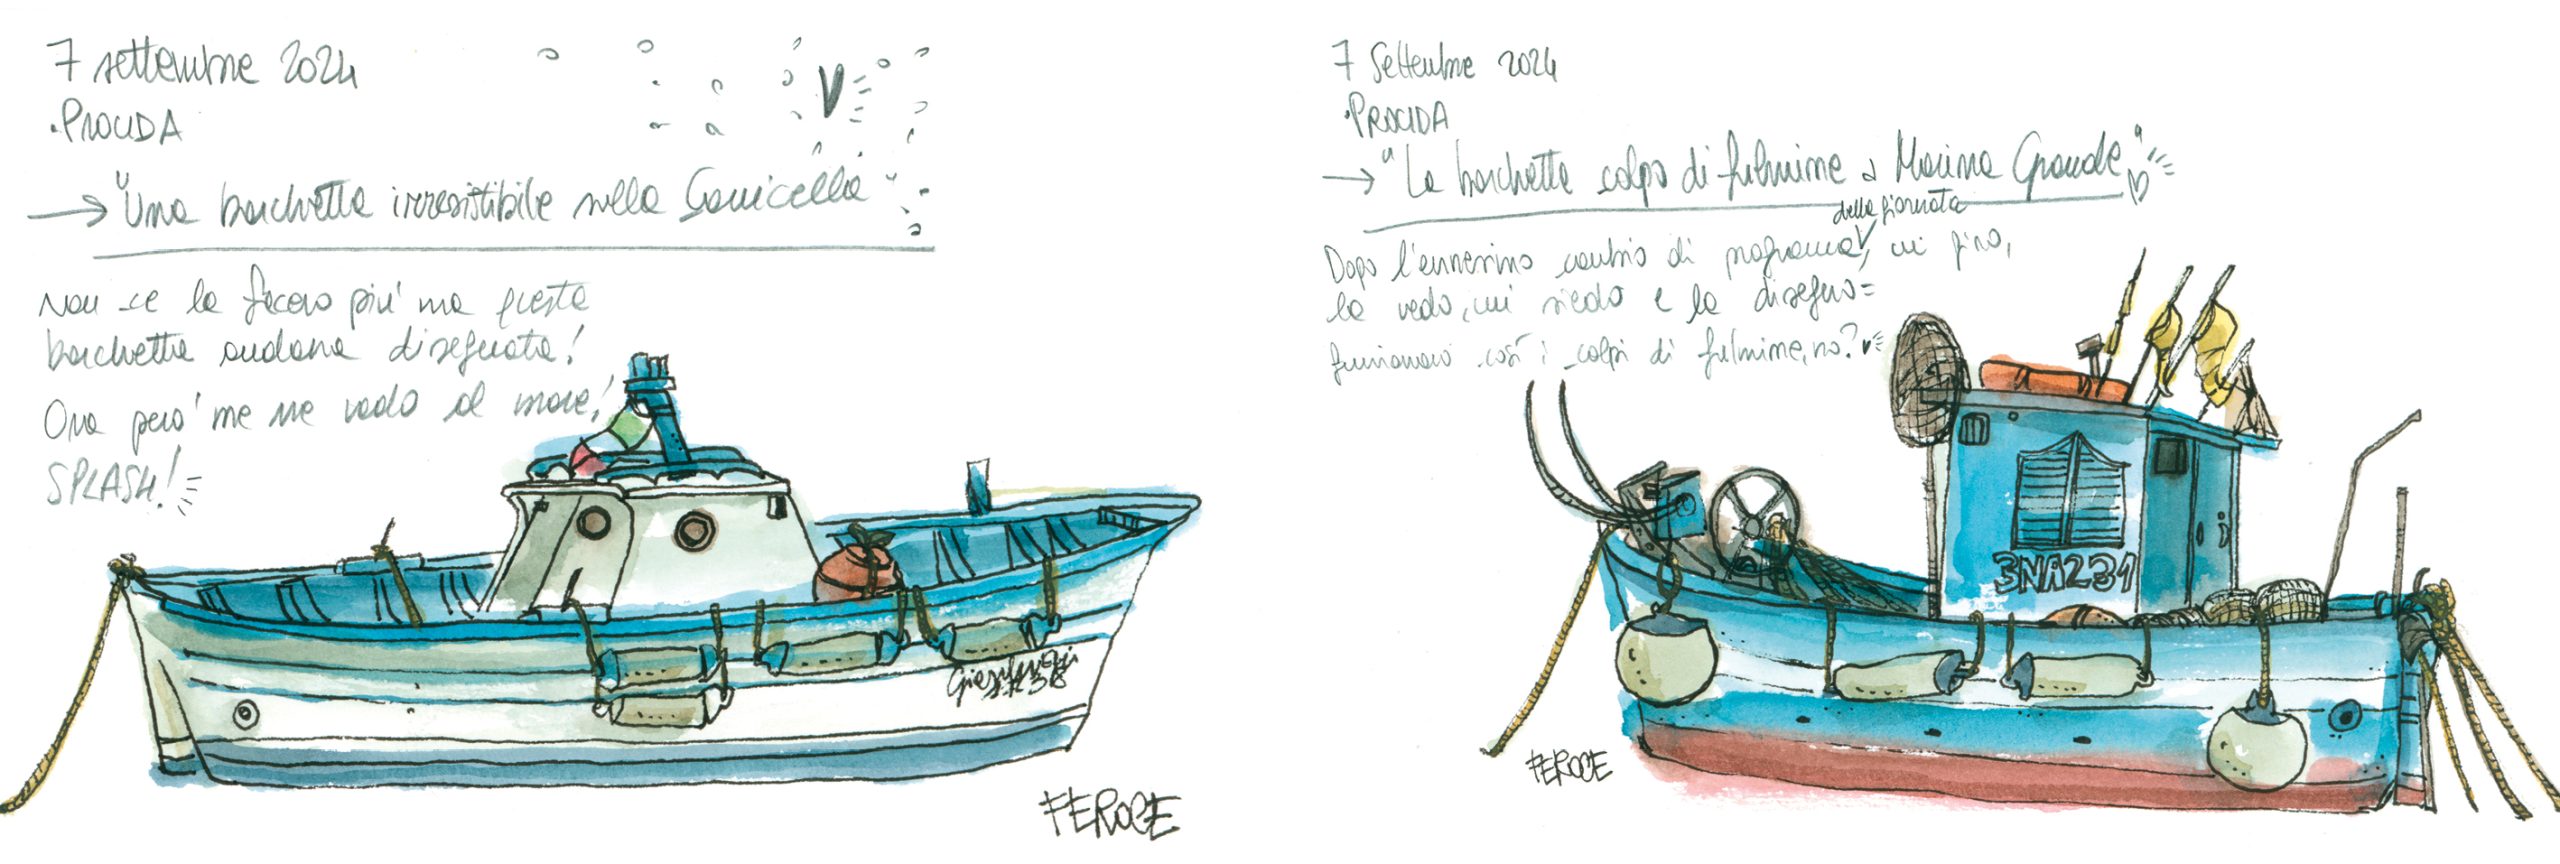 7 settembre 2024
• PROCIDA
→ "Una barchetta irresistibile sulla
Non ce la facevo più ma questa
barchetta andava disegnata!
Ora però me ne vado al mare!
SPLASH!
FEROCE
7 Settembre 2024
• PROCIDA
→ "La barchetta colpo di fulmine a Marina Grande"
della giornata
Dopo l'ennesimo cambio di programma, mi giro,
la vedo, mi siedo e la disegno =
funzionano così i colpi di fulmine, no?
3NA231
FEROCE